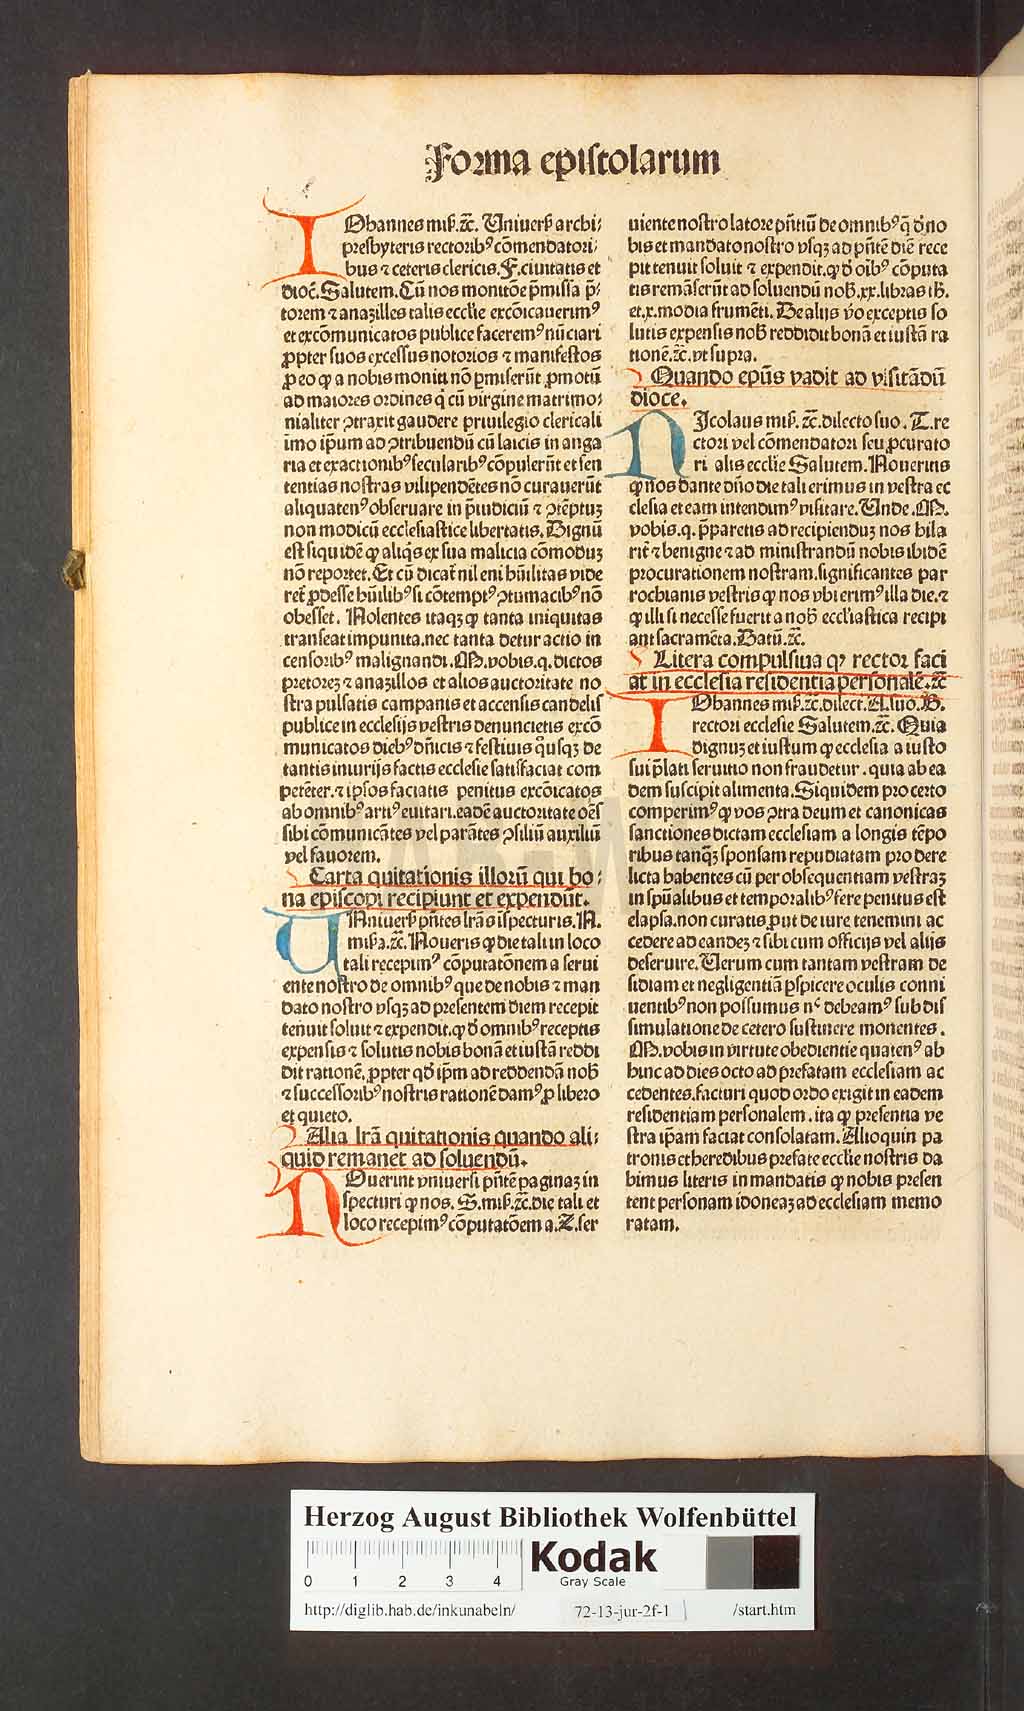 Forma epistolarum
IOhannes mis̃. ꝛc̃. Uniuers̃ archi-
presbyteris rectoribꝰ cõmendatori-
bus ⁊ ceteris clericis. F. ciuitatis et
dioc̃. Salutem. Cũ nos monitõe p̃missa p̃-
torem ⁊ anazilles talis ecclie excõicauerimꝰ
et excõmunicatos publice faceremꝰ nũciari
ꝓpter suos excessus notorios ⁊ manifestos
ꝓ eo ꝙ a nobis moniti nõ ꝑmiserũt ꝓmotũ
ad maiores ordines q̇ cũ virgine matrimo-
nialiter ꝯtraxit gaudere priuilegio clericali
ĩmo ip̃um ad ꝯtribuendũ cũ laicis in anga
ria et exactionibꝰ secularibꝰ cõpulerũt et sen
tentias nostras vilipendẽtes nõ curauerũt
aliquatenꝰ obseruare in p̃iudiciũ ⁊ ꝯtẽptuȝ
non modicũ ecclesiastice libertatis. Dignũ
est siquidẽ ꝙ aliq̇s ex sua malicia cõmoduȝ
nõ reportet. Et cũ dicat̃ nil eni hũilitas vide
ret̃ ꝓdesse hũilibꝰ si cõtemptꝰ ꝯtumacibꝰ nõ
obesset. Nolentes itaqȝ ꝙ tanta iniquitas
transeat impunita. nec tanta detur actio in
censoribꝰ malignandi. M. vobis. q. dictos
pretoreȝ ⁊ anazillos et alios auctoritate no
stra pulsatis campanis et accensis candelis
publice in ecclesijs vestris denuncietis excõ
municatos diebꝰ dñicis ⁊ festiuis q̊usqȝ de
tantis iniurijs factis ecclesie satisfaciat com
petẽter. ⁊ ipsos faciatis penitus excõicatos
ab omnibꝰ artiꝰ euitari. eadẽ auctoritate oẽs
sibi cõmunicãtes vel parãtes ꝯsiliũ auxiliũ
vel fauorem.
Carta quitationis illorũ qui bo-
na episcopi recipiunt et expendũt.
UNiuers̃ p̃ntes lrãs ĩspecturis. N.
mis̃ a. ꝛc̃. Noueris ꝙ die tali in loco
tali recepimꝰ cõputatõnem a serui
ente nostro de omnibꝰ que de nobis ⁊ man
dato nostro vsqȝ ad presentem diem recepit
tenuit soluit ⁊ expendit. ꝙ d̃ omnibꝰ receptis
expensis ⁊ solutis nobis bonã et iustã reddi
dit rationẽ. ꝓpter qd̃ ip̃m ad reddendã nob̃
⁊ successoribꝰ nostris rationẽ damꝰ ꝓ libero
et quieto.
Alia lrã quitationis quando ali-
quid remanet ad soluendũ.
NOuerint vniuersi p̃ntẽ paginaȝ in
specturi ꝙ nos. S. mis̃. ꝛc̃. die tali et
loco recepimꝰ cõputatõem a. Z. ser
uiente nostro latore p̃ntiũ de omnibꝰ q̃ d̃ no
bis et mandato nostro vsqȝ ad p̃ntẽ diẽ rece
pit tenuit soluit ⁊ expendit. ꝙ d̃ oĩbꝰ cõputa
tis remãserũt ad soluendũ nob̃. xx. libras th̃.
et. x. modia frumẽti. De alijs v̊o exceptis so
lutis expensis nob̃ reddidit bonã et iustã ra
tionẽ. ꝛc̃. vt supra.
Quando epũs vadit ad visitãdũ
dioce.
NIcolaus mis̃. ꝛc̃. dilecto suo. T. re
ctori vel cõmendatori seu ꝓcurato
ri alis ecclie Salutem. Noueritis
ꝙ nos dante dño die tali erimus in vestra ec
clesia et eam intendimꝰ visitare. Unde. M.
vobis. q. p̃paretis ad recipienduȝ nos hila
rit̃ ⁊ benigne ⁊ ad ministrandũ nobis ibidẽ
procurationem nostram. significantes par
rochianis vestris ꝙ nos vbi erimꝰ illa die. ⁊
ꝙ illi si necesse fuerit a nob̃ eccliastica recipi
ant sacramẽta. Datũ. ꝛc̃.
Litera compulsiua ꝙ rector faci
at in ecclesia residentia personalẽ. ꝛc̃
IOhannes mis̃. ꝛc̃. dilect. A. suo. B.
rectori ecclesie Salutem. ꝛc̃. Quia
dignuȝ et iustum ꝙ ecclesia a iusto
sui p̃lati seruitio non fraudetur. quia ab ea
dem suscipit alimenta. Siquidem pro certo
comperimꝰ ꝙ vos ꝯtra deum et canonicas
sanctiones dictam ecclesiam a longis tẽpo
ribus tanq̃ȝ sponsam repudiatam pro dere
licta habentes cũ per obsequentiam vestraȝ
in sp̃ualibus et temporalibꝰ fere penitus est
elapsa. non curatis ꝓut de iure tenemini ac
cedere ad eandeȝ ⁊ sibi cum officijs vel alijs
deseruire. Uerum cum tantam vestram de
sidiam et negligentiã ꝑspicere oculis conni
uentibꝰ non possumus nᶜ debeamꝰ sub dis
simulatione de cetero sustinere monentes.
M. vobis in virtute obedientie quatenꝰ ab
hinc ad dies octo ad prefatam ecclesiam ac
cedentes. facturi quod ordo exigit in eadem
residentiam personalem. ita ꝙ presentia ve
stra ip̃am faciat consolatam. Alioquin pa
tronis et heredibus prefate ecclie nostris da
bimus literis in mandatis ꝙ nobis presen
tent personam idoneaȝ ad ecclesiam memo
ratam.
HAB-W
Herzog August Bibliothek Wolfenbüttel
0 1 2 3 4
Kodak
Gray Scale
http://diglib.hab.de/inkunabeln/ 72-13-jur-2f-1 /start.htm